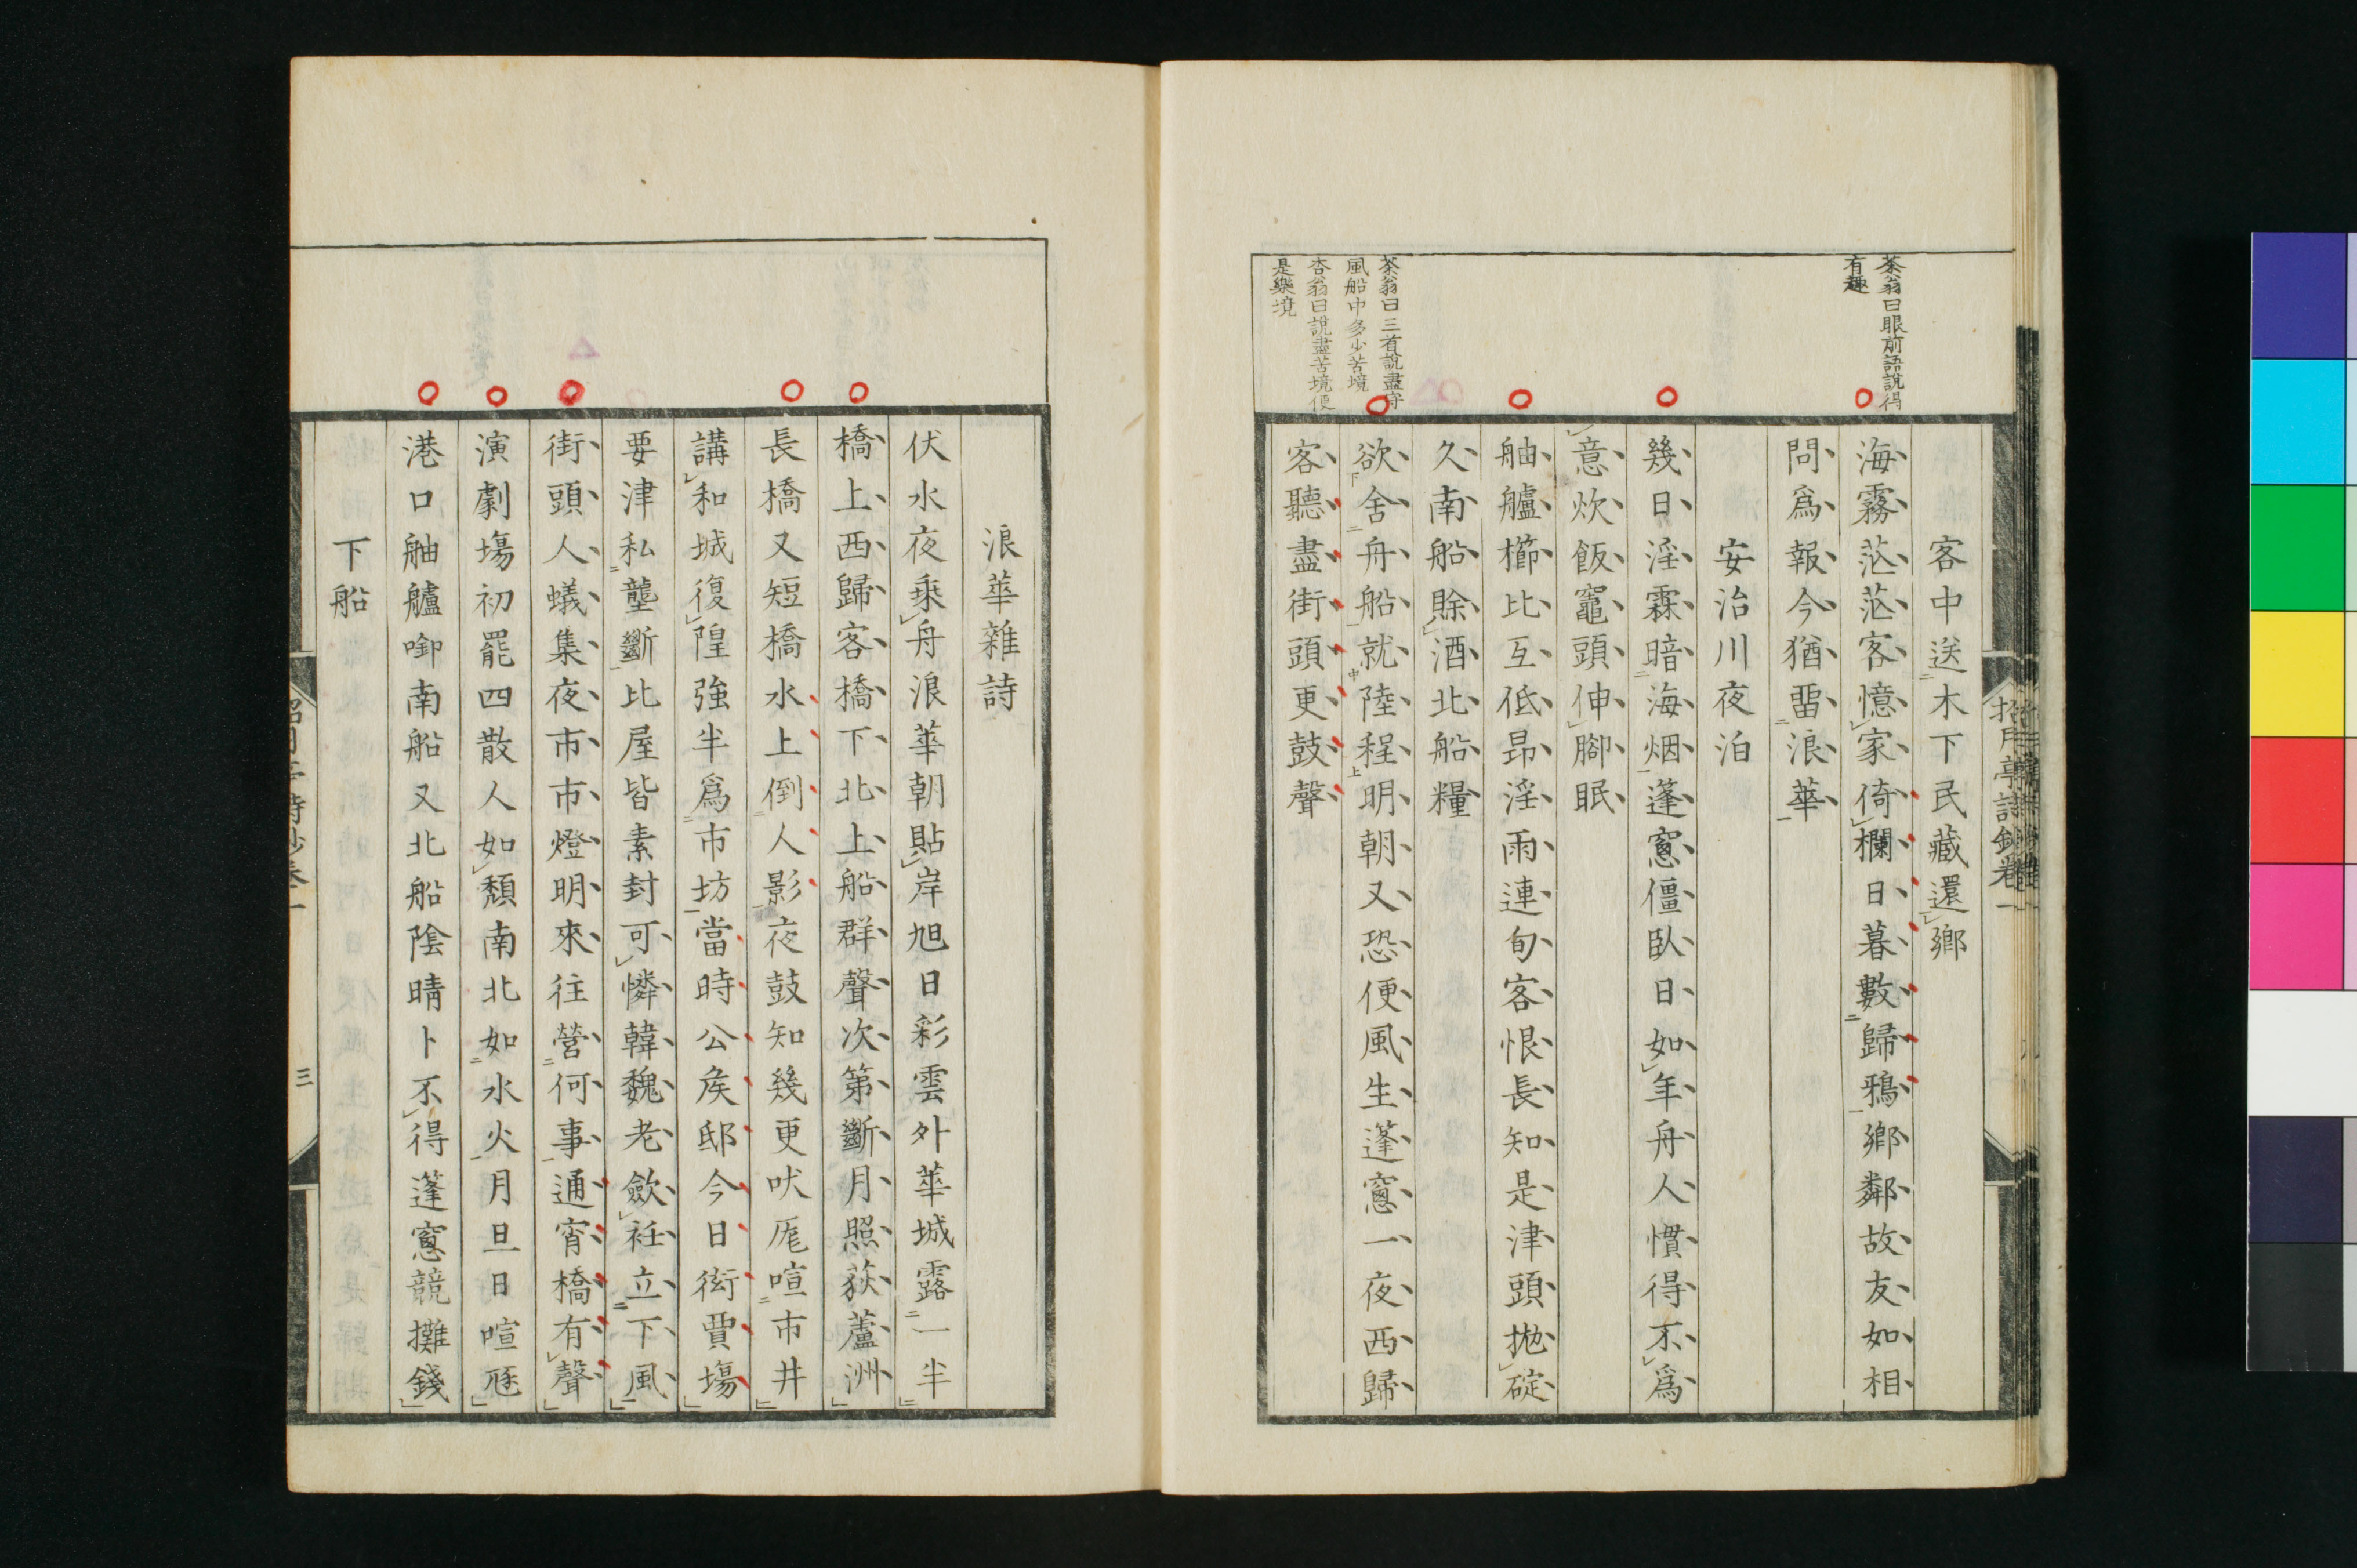 茶翁曰眼前語說得
有趣
客中送木下民藏還鄉
海霧茫茫客憶家倚欄日暮數歸鴉鄉鄰故友如相
問爲報今猶畱浪華
安治川夜泊
幾日淫霖暗海烟蓬窓僵臥日如年舟人慣得不爲
意炊飯竈頭伸腳眠
舳艫櫛比互低昻淫雨連旬客恨長知是津頭拋碇
久南船賖酒北船糧
茶翁曰三首說盡守
風船中多少苦境
杏翁曰說盡苦境便
是樂境
欲舍舟船就陸程明朝又恐便風生蓬窓一夜西歸
客聽盡街頭更鼓聲
浪華雜詩
伏水夜乘舟浪華朝貼岸旭日彩雲外華城露一半
橋上西歸客橋下北上船群聲次第斷月照荻蘆洲
長橋又短橋水上倒人影夜鼓知幾更吠尨喧市井
講和城復隍強半爲市坊當時公矦邸今日衒賈塲
要津私壟斷比屋皆素封可憐韓魏老斂衽立下風
街頭人蟻集夜市市燈明來往營何事通宵橋有聲
演劇塲初罷四散人如頹南北如水火月旦日喧豗
港口舳艫啣南船又北船陰晴卜不得蓬窓競攤錢
下船
三